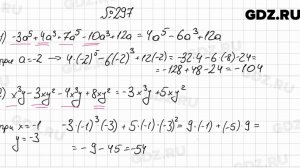 GDZ.RU
№297
1) -3a⁵+4a³+7a⁵-10a³+12a = 4a⁵-6a³+12a
при a=-2 → 4·(-2)⁵-6·(-2)³+12·(-2) = -32·4-6·(-8)-24 =
= -128+48-24 = -104
2) x³y-3xy²-4x³y+8xy² = -3x³y+5xy²
при x=-1
y=-3
-3·(-1)³·(-3)+5·(-1)·(-3)² = 9·(-1)+(-5)·9 =
= -9-45 = -54
GDZ.RU